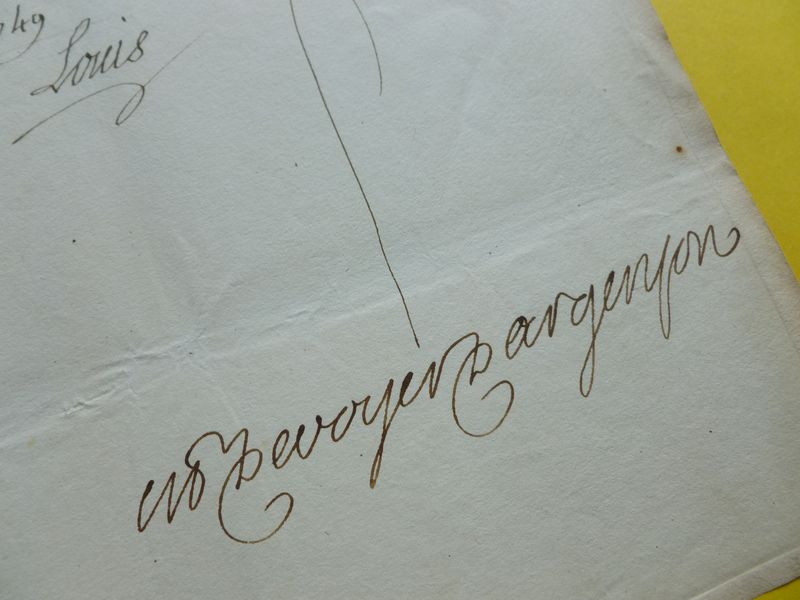 49
Louis
MP De voyer Dargenson